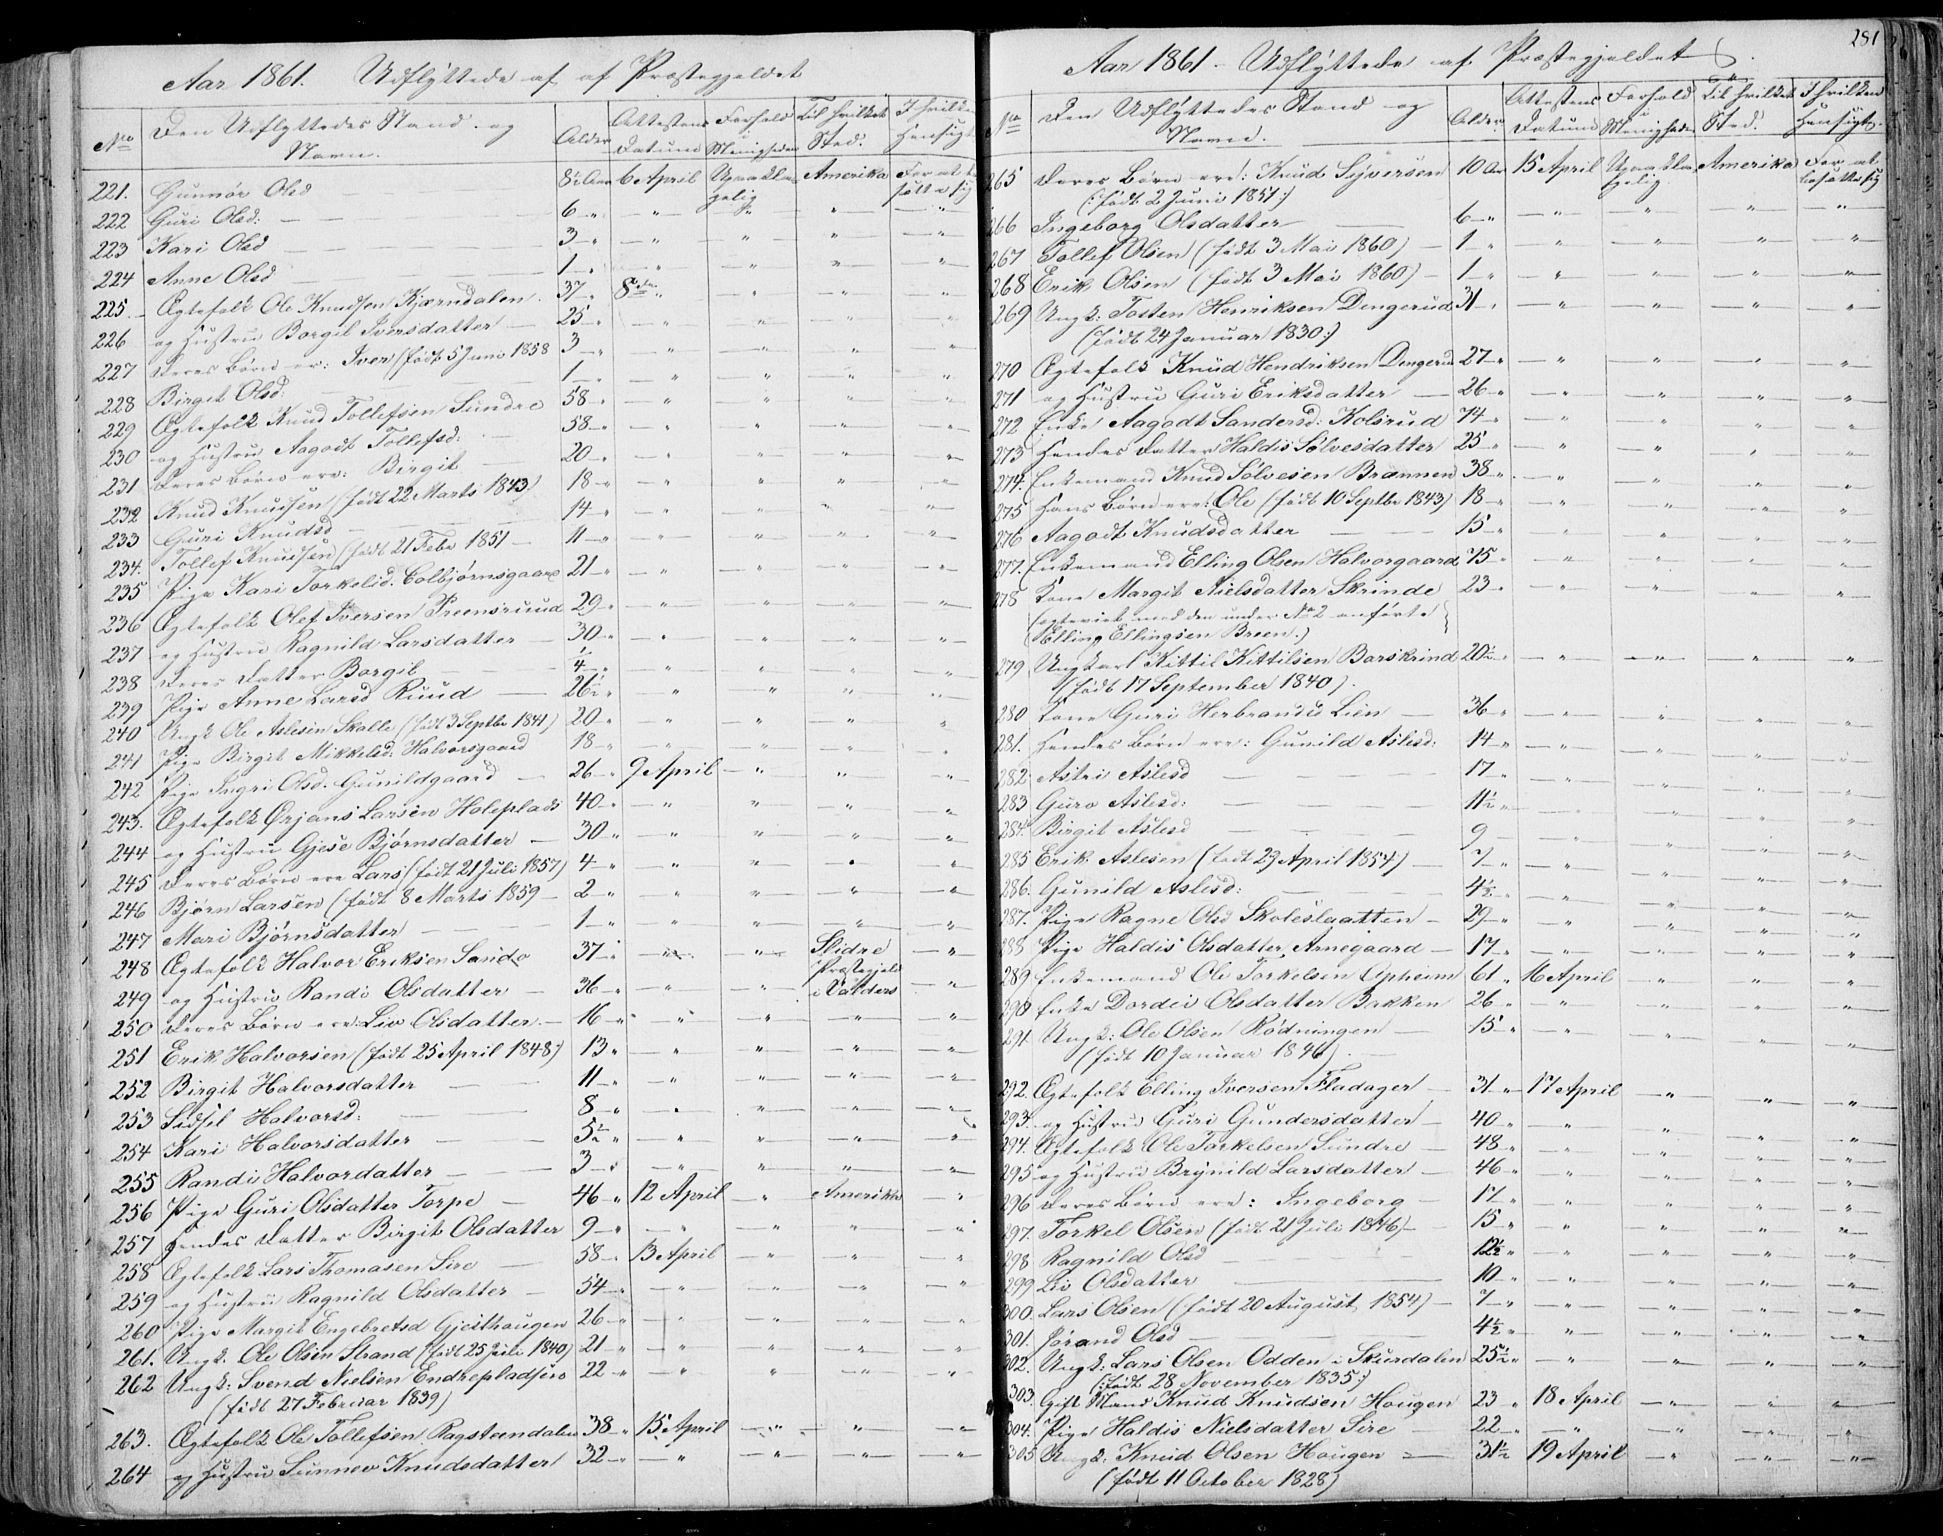 Aar 1861. Udflyttede af af Præstegjeldet
No Den Udflyttedes Stand og Navn. Alder Attestens Datum Forhold i Menigheden Til hvilket Sted. I hvilken Hensigt
221. Gunnor Olsd 8½ Aar 6 April Upaaklagelig Amerika For at sætte sig
222 Guri Olsd: 6 " " " " "
223 Kari Olsd 3 " " " " "
224 Anne Olsd 1 " " " " "
225. Ægtefolk Ole Knudsen Kjærndalen 37 " 8de " " " "
226 og Hustru Borgil Iversdatter 25 " " " " "
227 Deres Børn er: Iver (født 5 Juni 1858 3 " " " " "
228 Birgit Olsd: 1 " " " " "
229 Ægtefolk Knud Tollefsen Sundre 58 " " " " "
230 og Hustru Aagodt Tollefsd: 58 " " " " "
231 Deres Børn ere: Birgit 20 " " " " "
232 Knud Knudsen (født 22 Marts 1843) 18 " " " " "
233 Guri Knudsd 14 " " " " "
234. Tollef Knudsen (født 21 Febr 1851 11 " " " " "
235 Pige Kari Torkelsd. Colbjørnsgaard 21 " " " " "
236 Ægtefolk Olef Iversen Preensruud 29 " " " " "
237 og Hustru Ragnild Larsdatter 30 " " " " "
238 Deres Datter Borgil ¼ " " " " "
239 Pige Anne Larsd Ruud 26½ " " " " "
240 Ungk Ole Aslesen Skalle (født 3 Septbr 1841) 20 " " " " "
241 Pige Birgit Mikkelsd: Halvorsgaard 18 " " " " "
242 Pige Ingri Olsd. Gunildgaard 26 " 9 April " " "
243. Ægtefolk Ørjans Larsen Holeplads 40 " " " " "
244 og Hustru Gjese Bjørnsdatter 30 " " " " "
245 Deres Børn ere Lars (født 21 Juli 1857) 4 " " " " "
246 Bjørn Larsen (født 8 Marts 1859 2 " " " " "
247 Mari Bjørnsdatter 1 " " " " "
248 Ægtefolk Halvor Eriksen Sando 37 " " " Slidre "
249 og Hustru Randi Olsdatter 36 " " " Præstegjeld i Valders "
250 Deres Børn ere: Liv Olsdatter 16 " " " " "
251 Erik Halvorsen (født 25 April 1848:) 13 " " " " "
252 Birgit Halvorsdatter 11 " " " " "
253 Sidsil Halvorsd: 8 " " " " "
254 Kari Halvorsdatter 5½ " " " " "
255 Randi Halvordatter 3 " " " " "
256 Pige Guri Olsdatter Torpe 46 " 12 April " Amerika "
257 Hendes Datter Birgit Olsdatter 9 " " " " "
258 Ægtefolk Lars Thomasen Sire 58 " 13 April " " "
259 og Hustru Ragnild Olsdatter 54 " " " " "
260 Pige Margit Engebretsd Gjesthaugen 26 " " " " "
261. Ungk. Ole Olsen Strand (født 25 Juli 1840) 21 " " " " "
262 Ungk: Svend Nielsen Endrepladsen 22 " " " " "
(født 27 Februar 1839)
263. Ægtefolk Ole Tollefsen Ragsteendalen 38 " 15 April " " "
264 og Hustru Sunnev Knudsdatter 32 " " " " "
281
Aar 1861 - Udflyttede af Præstegjeldet
No Den Udflyttedes Stand og Navn. Alder Attestens Datum Forhold i Menigheden Til hvilket Sted. I hvilken Hensigt
265 Deres Børn ere: Knud Syversen 10 Aar 15 April Upaaklagelig Amerika For at bosætte sig
(: født 2 Juni 1851:)
266 Ingeborg Olsdatter 6 " " " " "
267 Tollef Olsen (født 3 Mai 1860) 1 " " " " "
268 Erik Olsen (født 3 Mai 1860) 1 " " " " "
269 Ungk: Tosten Henriksen Dengerud 31 " " " " "
(født 24 Januar 1830:)
270 Ægtefolk Knud Hendriksen Dengerud 27 " " " " "
271 og Hustru Guri Eriksdatter 26 " " " " "
272 Enke Aagodt Sandersd: Kolsrud 74 " " " " "
273 Hendes Datter Haldis Sølvesdatter 25 " " " " "
274. Enkemand Knud Sølvesen Brannen 38 " " " " "
275 Hans Børn ere: Ole (født 10 Septbr 1843) 18 " " " " "
276 Aagodt Knudsdatter 15 " " " " "
277. Enkemand Elling Olsen Halvorgaard 75 " " " " "
278 Kone Margit Nielsdatter Skrinde 23 " " " " "
(egteviet med den under No 2 anførte
Elling Ellingsen Breen.)
279 Ungkarl Kittil Kittilsen Barskrind 20½ " " " " "
(født 17 September 1840).
280 Kone Guri Herbrandsd Lien 36 " " " " "
281. Hendes Børn ere: Gunild Aslesd: 14 " " " " "
282. Astri Aslesd 17 " " " " "
283 Guro Aslesd: 11½ " " " " "
284. Birgit Aslesd 9 " " " "
285 Erik Aslesen (født 29 April 1854) 7 " " " " "
286. Gunild Aslesd: 4½ " " " " "
287. Pige Ragne Olsd Skoleslaatten 29 " " " " "
288 Pige Haldis Olsdatter Arnegaard 17 " " " " "
289 Enkemand Ole Torkelsen Opheim 61 " 16 April " " "
290 Enke Dordei Olsdatter Bakken 26 " " " " "
291 Ungk: Ole Olsen Rødningen 15 " " " " "
(født 10 Januar 1846).
292. Ægtefolk Elling Iversen Fladager 31 " 17 April " " "
293. og Hustru Guri Gundersdatter 40 " " " " "
294. Ægtefolk Ole Torkelsen Sundre 48 " " " " "
295 og Hustru Brynild Larsdatter 46 " " " " "
296 Deres Børn ere: Ingeborg 17 " " " " "
297. Torkel Olsen (født 21 Juli 1846) 15 " " " " "
298. Ragnild Olsd 12½ " " " " "
299 Liv Olsdatter 10 " " " " "
300. Lars Olsen (født 20 August 1854) 7 " " " " "
301. Jørand Olsd 4½ " " " " "
302. Ungk: Lars Olsen Odden i Skurdalen 25½ " " " " "
(: født 28 November 1835:)
303. Gift Mand Knud Knudsen Haugen 23 " 18 April " " "
304. Pige Haldis Nielsdatter Sire 22 " " " " "
305 Ungk: Knud Olsen Haugen 31½ 19 April " " "
(født 11 October 1828)